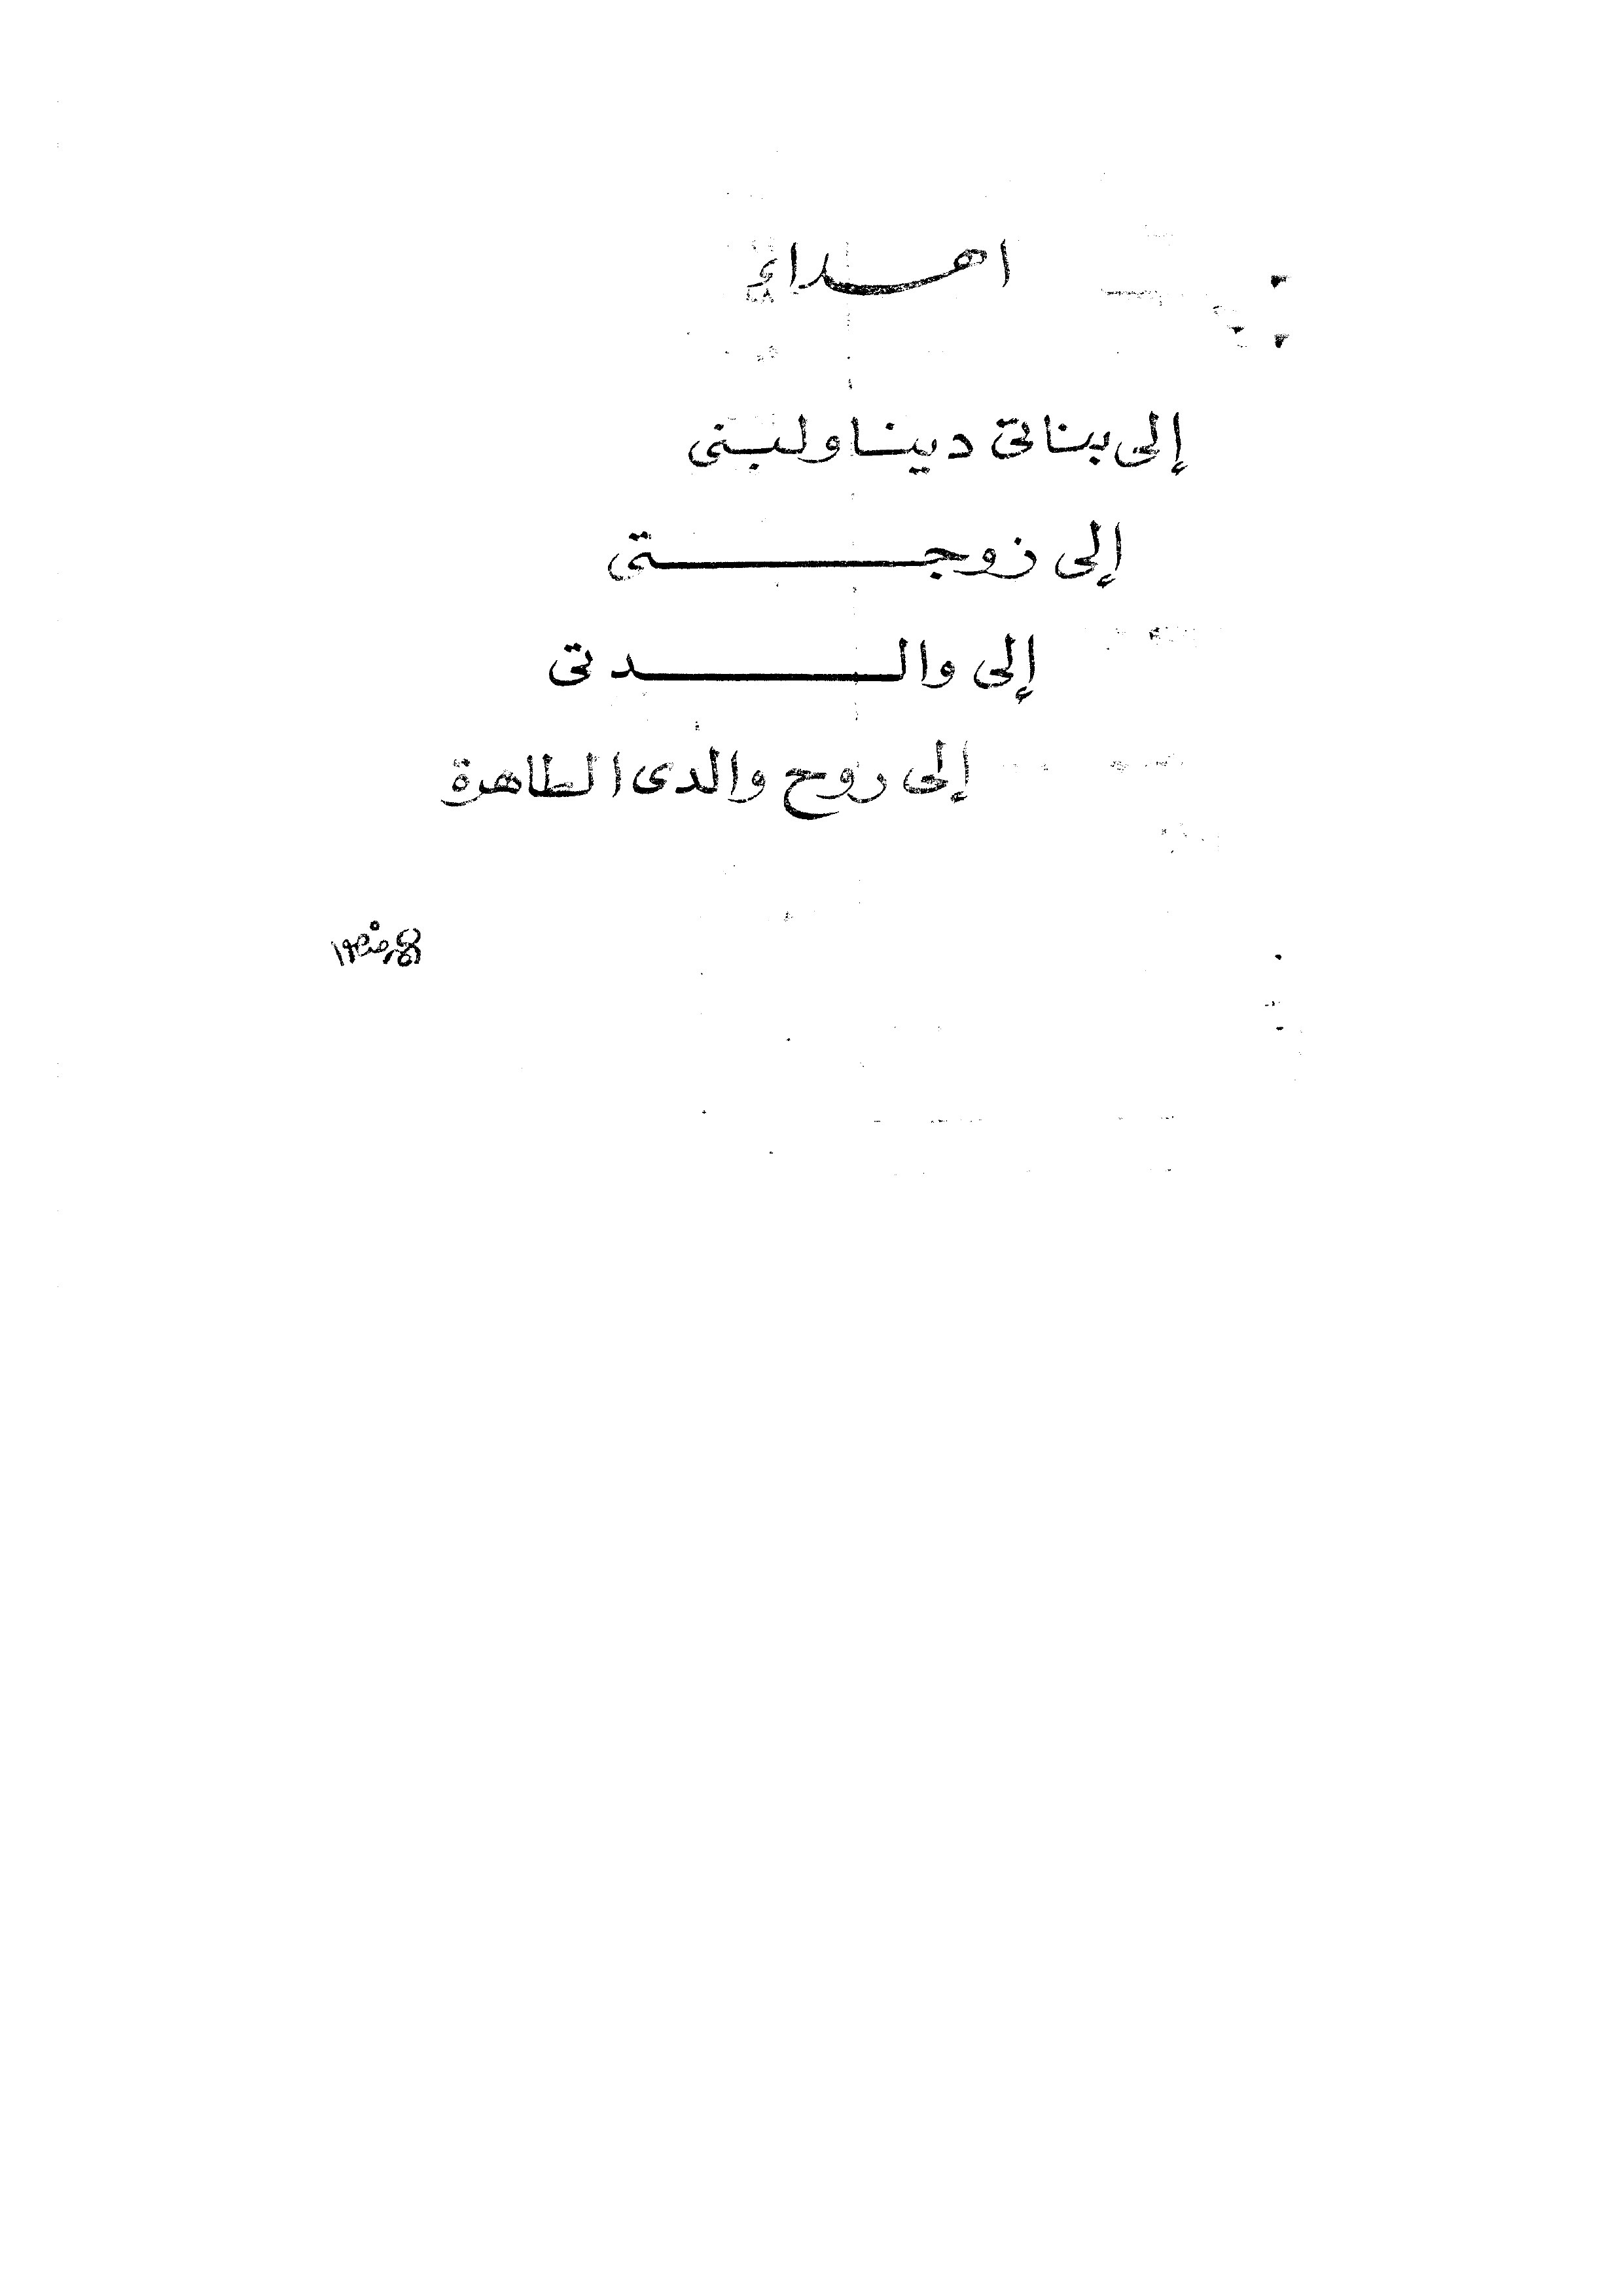 اهداء
إلى بناتى دينا ولبنى
إلى زوجتى
إلى والدتى
إلى روح والدى الطاهرة